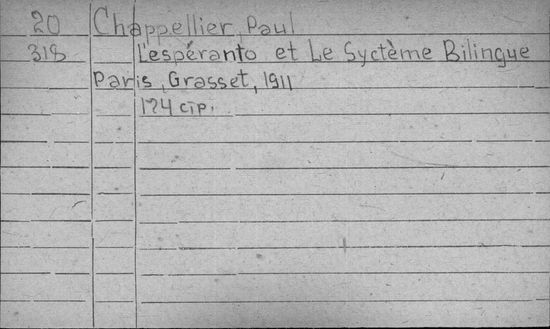 20 Chappellier, Paul
318 L'espéranto et Le Syctème Bilingue
Paris, Grasset, 1911
174 стр.